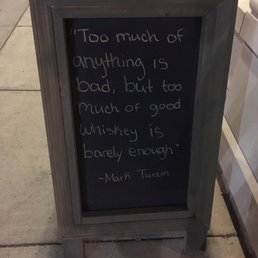 "Too much of
anything is
bad, but too
much of good
whiskey is
barely enough"
-Mark Twain